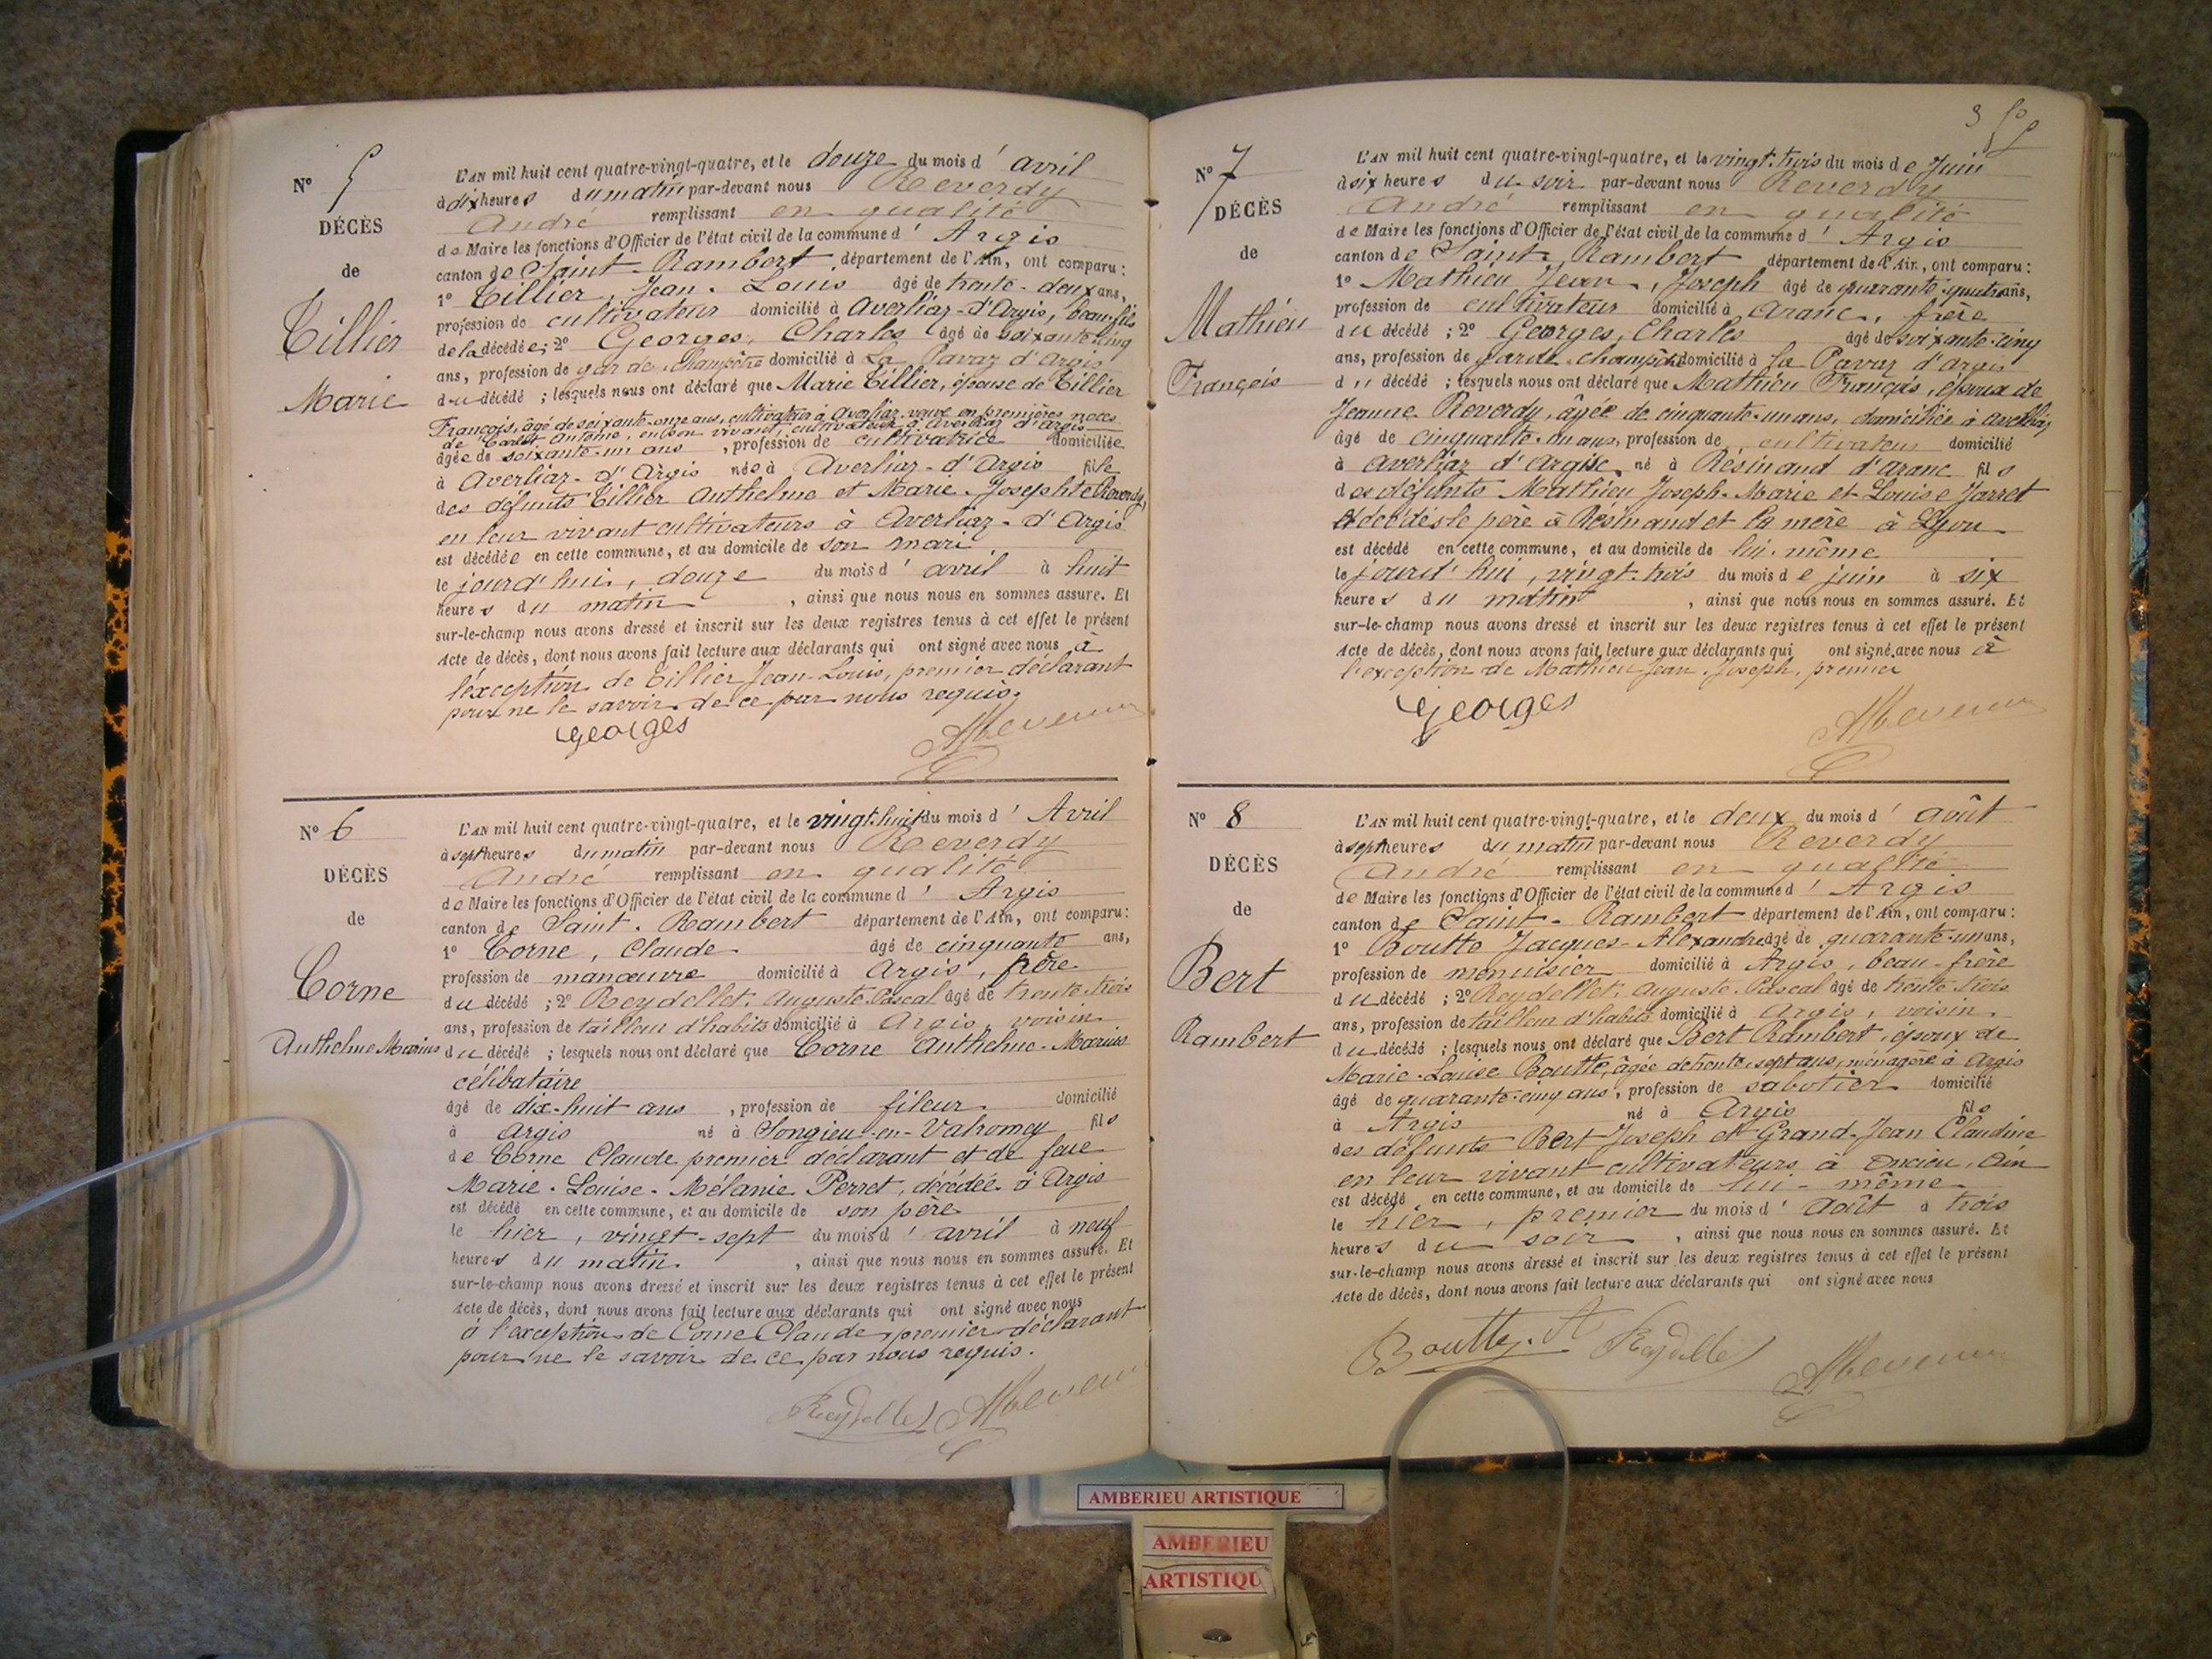 N° 5
DÉCÈS
de
Tillier
Marie
L'AN mil huit cent quatre-vingt-quatre, et le douze du mois d'avril
à dix heures du matin par-devant nous Reverdy
André remplissant en qualité
de Maire les fonctions d'Officier de l'état civil de la commune d'Argis
canton de Saint-Rambert, département de l'Ain, ont comparu :
1° Tillier, Jean-Louis âgé de trente-deux ans,
profession de cultivateur domicilié à Averliaz-d'Argis, beau-fils
de la décédée; 2° Georges, Charles âgé de soixante-cinq
ans, profession de gar de champêtre domicilié à La Pavaz d'Argis
du décédé ; lesquels nous ont déclaré que Marie Tillier, épouse de Tillier
François, âgé de soixante-onze ans, cultivateur à Averliaz, veuve en premières noces
de Antoine, en son vivant, cultivateur à Averliaz d'Argis
âgée de soixante-un ans, profession de cultivatrice domiciliée
à Averliaz-d'Argis née à Averliaz-d'Argis fille
des défunts Tillier Anthelme et Marie-Josephte Reverdy,
en leur vivant cultivateurs à Averliaz-d'Argis
est décédée en cette commune, et au domicile de son mari
le jourd'hui, douze du mois d'avril à huit
heures du matin, ainsi que nous nous en sommes assuré. Et
sur-le-champ nous avons dressé et inscrit sur les deux registres tenus à cet effet le présent
Acte de décès, dont nous avons fait lecture aux déclarants qui ont signé avec nous à
l'exception de Tillier Jean-Louis, premier déclarant
pour ne le savoir de ce par nous requis.
Georges
N° 6
DÉCÈS
de
Corne
Anthelme Marius
L'AN mil huit cent quatre-vingt-quatre, et le vingt-huit du mois d'Avril
à sept heures du matin par-devant nous Reverdy
André remplissant en qualité
de Maire les fonctions d'Officier de l'état civil de la commune d'Argis
canton de Saint-Rambert département de l'Ain, ont comparu :
1° Corne, Claude âgé de cinquante ans,
profession de manœuvre domicilié à Argis, frère
du décédé ; 2° Reydellet, Auguste-Pascal âgé de trente-trois
ans, profession de tailleur d'habits domicilié à Argis, voisin
du décédé ; lesquels nous ont déclaré que Corne Anthelme-Marius
célibataire
âgé de dix-huit ans, profession de fileur domicilié
à Argis né à Songieu-en-Valromey fils
de Corne Claude premier déclarant et de feue
Marie-Louise-Mélanie Perret, décédée à Argis
est décédé en cette commune, et au domicile de son père
le hier, vingt-sept du mois d'avril à neuf
heures du matin, ainsi que nous nous en sommes assuré. Et
sur-le-champ nous avons dressé et inscrit sur les deux registres tenus à cet effet le présent
Acte de décès, dont nous avons fait lecture aux déclarants qui ont signé avec nous
à l'exception de Corne Claude, premier déclarant
pour ne le savoir de ce par nous requis.
Reydellet
3
N° 7
DÉCÈS
de
Mathieu
François
L'AN mil huit cent quatre-vingt-quatre, et le vingt-trois du mois de Juin
à six heures du soir par-devant nous Reverdy
André remplissant en qualité
de Maire les fonctions d'Officier de l'état civil de la commune d'Argis
canton de Saint-Rambert département de l'Ain, ont comparu :
1° Mathieu Jean-Joseph âgé de quarante-quatre ans,
profession de cultivateur domicilié à Aranc, frère
du décédé ; 2° Georges, Charles âgé de soixante-cinq
ans, profession de garde-champêtre domicilié à la Pavaz d'Argis
du décédé ; lesquels nous ont déclaré que Mathieu François, époux de
Jeanne Reverdy, âgée de cinquante-un ans, domiciliée à Averliaz
âgé de cinquante-un ans, profession de cultivateur domicilié
à Averliaz d'Argis né à Résinand d'Aranc fils
des défunts Mathieu Joseph-Marie et Louise Jarret
décédés le père à Résinand et la mère à Lyon
est décédé en cette commune, et au domicile de lui-même
le jourd'hui, vingt-trois du mois de juin à six
heures du matin, ainsi que nous nous en sommes assuré. Et
sur-le-champ nous avons dressé et inscrit sur les deux registres tenus à cet effet le présent
Acte de décès, dont nous avons fait lecture aux déclarants qui ont signé avec nous à
l'exception de Mathieu Jean-Joseph, premier
Georges
N° 8
DÉCÈS
de
Bert
Rambert
L'AN mil huit cent quatre-vingt-quatre, et le deux du mois d'août
à sept heures du matin par-devant nous Reverdy
André remplissant en qualité
de Maire les fonctions d'Officier de l'état civil de la commune d'Argis
canton de Saint-Rambert département de l'Ain, ont comparu :
1° Boutte Jacques-Alexandre âgé de quarante-un ans,
profession de menuisier domicilié à Argis, beau-frère
du décédé ; 2° Reydellet, Auguste-Pascal âgé de trente-trois
ans, profession de tailleur d'habits domicilié à Argis, voisin
du décédé ; lesquels nous ont déclaré que Bert Rambert, époux de
Marie-Louise Boutte, âgée de trente-sept ans, ménagère à Argis
âgé de quarante-cinq ans, profession de sabotier domicilié
à Argis né à Argis fils
des défunts Bert Joseph et Grand-Jean Claudine
en leur vivant cultivateurs à Oncieu, Ain
est décédé en cette commune, et au domicile de lui-même
le hier, premier du mois d'août à trois
heures du soir, ainsi que nous nous en sommes assuré. Et
sur-le-champ nous avons dressé et inscrit sur les deux registres tenus à cet effet le présent
Acte de décès, dont nous avons fait lecture aux déclarants qui ont signé avec nous
Boutte. A Reydellet
AMBERIEU ARTISTIQUE
AMBERIEU
ARTISTIQU